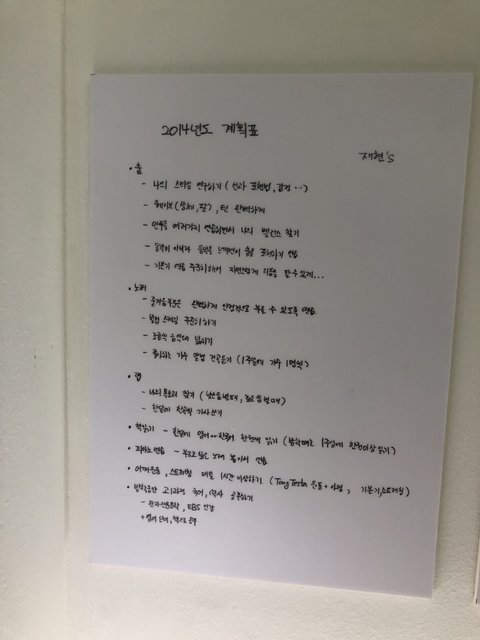 2014년도 계획표
재현's
• 춤
- 나의 스타일 연구하기 (선과 표현법, 감정 …)
- 웨이브 (상체, 팔), 턴 완벽하게
- 안무를 여러가지 연습하면서 나의 밸런스 찾기
- 음악의 이해와 음악을 느끼면서 춤을 표현하기 연습
- 기본기 연습 꾸준히해서 자연스럽게 리듬을 탈수있게…
• 노래
- 즐거움부분은 완벽하게 안정적으로 부를 수 있도록 연습.
- 발성 스케일 꾸준히 하기
- 조금씩 음역대 넓히기
- 좋아하는 가수 앨범 전곡듣기 (1주일에 가수 1명씩)
• 랩
- 나의 목소리 찾기 (낮은음역대, 높은음역대)
- 한달에 한곡씩 가사쓰기
• 책읽기 - 한달에 한권씩 읽기 (방학때는 1주일에 한권이상 읽기)
• 피아노 연습 - 부르고 싶은 노래 뽑아서 연습
• 어깨운동, 스트레칭 매일 1시간 이상하기 (Tony Testa 운동 + 아령, 기본기, 스트레칭)
• 고1과정 국어, 역사 공부하기
- EBS 인강
+ 영어 단어, 책으로 공부